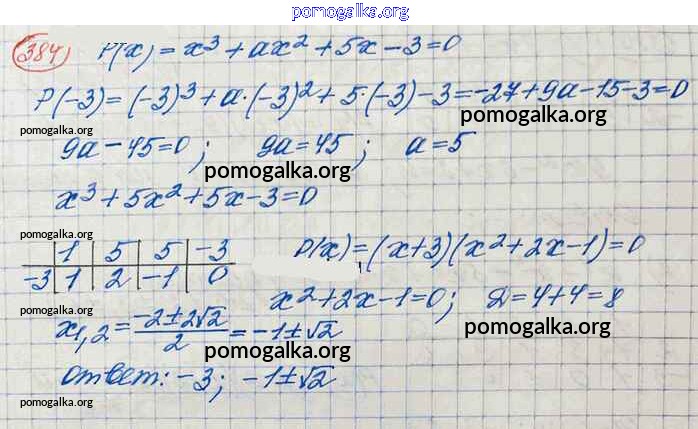 pomogalka.org
384) P(x) = x³ + ax² + 5x - 3 = 0
P(-3) = (-3)³ + a·(-3)² + 5·(-3) - 3 = -27 + 9a - 15 - 3 = 0
pomogalka.org pomogalka.org
9a - 45 = 0; 9a = 45; a = 5
pomogalka.org pomogalka.org
x³ + 5x² + 5x - 3 = 0
pomogalka.org
1 5 5 -3 P(x) = (x+3)(x² + 2x - 1) = 0
-3 1 2 -1 0 pomogalka.org
pomogalka.org x² + 2x - 1 = 0; D = 4 + 4 = 8
x1,2 = -2 ± 2√2 / 2 = -1 ± √2 pomogalka.org
pomogalka.org
ответ: -3; -1 ± √2
pomogalka.org